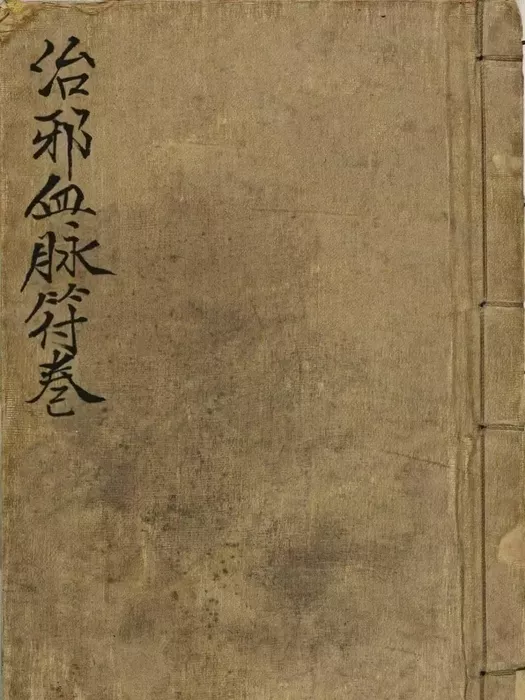 治邪血脉符卷